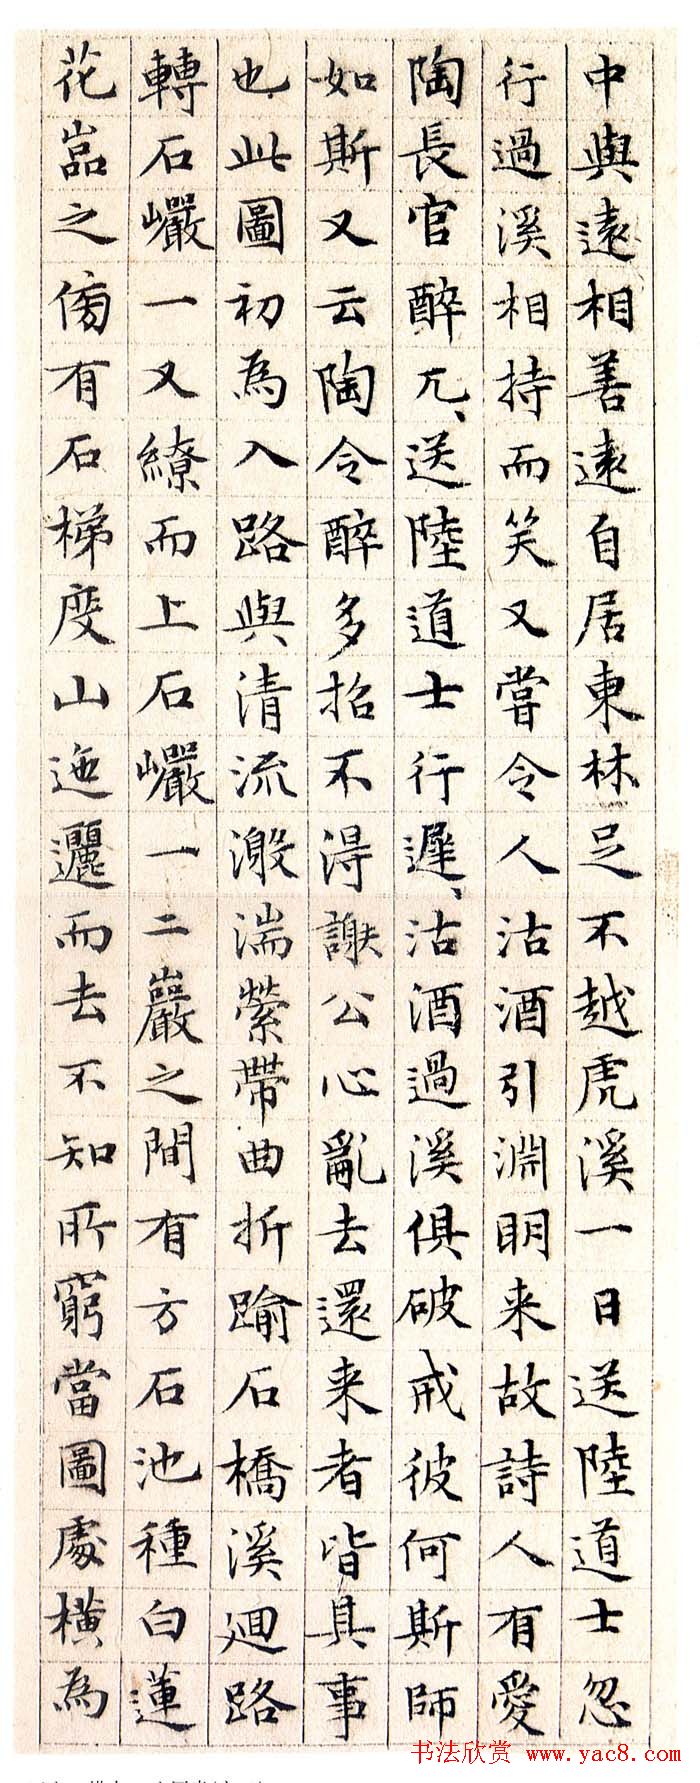 中與遠相善遠自居東林足不越虎溪一日送陸道士忽
行過溪相持而笑又嘗令人沽酒引淵明来故詩人有愛
陶長官醉兀、送陸道士行遲、沽酒過溪俱破戒彼何斯師
如斯又云陶令醉多招不得謝公心亂去還来者皆具事
也此圖初為入路與清流激湍縈帶曲折踰石橋溪迴路
轉石巗一又繚而上石巗一二巖之間有方石池種白蓮
花嵓之傍有石梯度山迤邐而去不知所窮當圖處橫為
书法欣赏 www.yac8.com